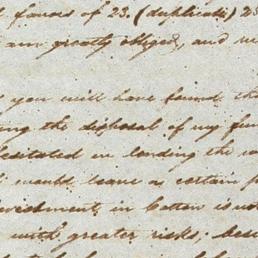 favors of 23. (duplicate) 23
am greatly obliged, and
you will have found the
the disposal of my fun
hesitated in landing the
would leave a certain p
vestment in cotton is not
with greater risks; besi